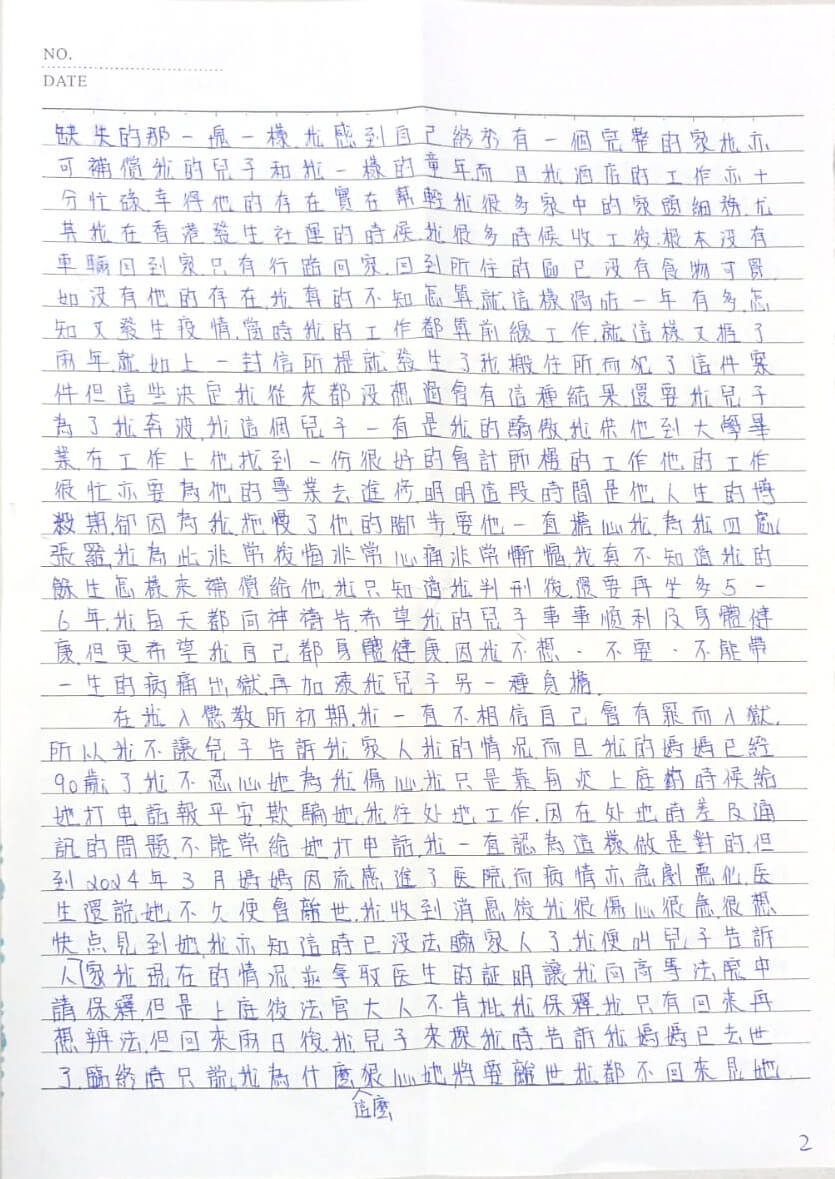 NO.
DATE
缺失的那一瘋一樣.我感到自己終於有一個完整的家.我亦
可補償我的兒子和我一樣的童年.而且我酒店的工作亦十
分忙碌.幸得他的存在實在幫輕我很多家中的家頭細務.尤
其我在香港發生社運的時候.我很多時候收工後.根本没有
車輛回到家.只有行路回家.回到所住的區已没有食物可買.
如没有他的存在.我真的不知怎算.就這樣過咗一年有多.怎
知又發生疫情.當時我的工作都算前線工作.就這樣又捱了
兩年.就如上一封信所提就發生了我搬住所.而犯了這件案
件但這些決定我從來都没想過會有這種結果.還要我兒子
為了我奔波.我這個兒子一直是我的驕傲.我供他到大學畢
業.在工作上他找到一份很好的會計師樓的工作他的工作
很忙亦要為他的專業去進修.明明這段時間是他人生的搏
殺期.卻因為我拖慢了他的腳步.要他一直擔心我.為我四處
張羅.我為此非常後悔非常心痛非常慚愧.我真不知道我的
餘生怎樣來補償給他.我只知道我判刑後.還要再坐多5-
6年.我每天都向神禱告.希望我的兒子事事順利及身體健
康.但更希望我自己都身體健康.因我不想.不要.不能帶
一生的病痛出獄.再加添我兒子另一種負擔.
在我入懲教所初期.我一直不相信自己會有罪而入獄.
所以我不讓兒子告訴我家人我的情況.而且我的媽媽已經
90歲了.我不忍心她為我傷心.我只是靠每次上庭的時候給
她打电話報平安.欺騙她.我往处地工作.因在处地時差及通
訊的問題.不能常給她打电話.我一直認為這樣做是對的.但
到2024年3月媽媽因流感進了医院.而病情亦急劇惡化.医
生還說她不久便會離世.我收到消息後我很傷心很急.很想
快点見到她.我亦知這時已没法瞞家人了.我便叫兒子告訴
人家我現在的情況並拿取医生的証明讓我向高等法院申
請保釋.但是上庭後法官大人不肯批我保釋.我只有回來再
想辦法.但回來兩日後.我兒子來探我時告訴我媽媽已去世
了.臨終時只說.我為什麼狠心她將要離世我都不回來見她.
這麼
2